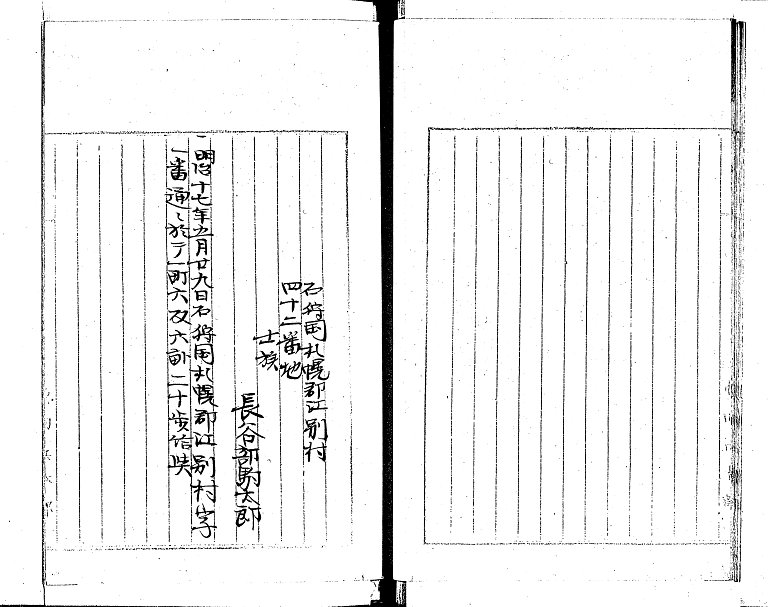 石狩国札幌郡江別村
四十二番地
士族
長谷部駒太郎
一明治十七年五月廿九日石狩国札幌郡江別村字
一番通ニ於テ一町六反六畝二十歩給与